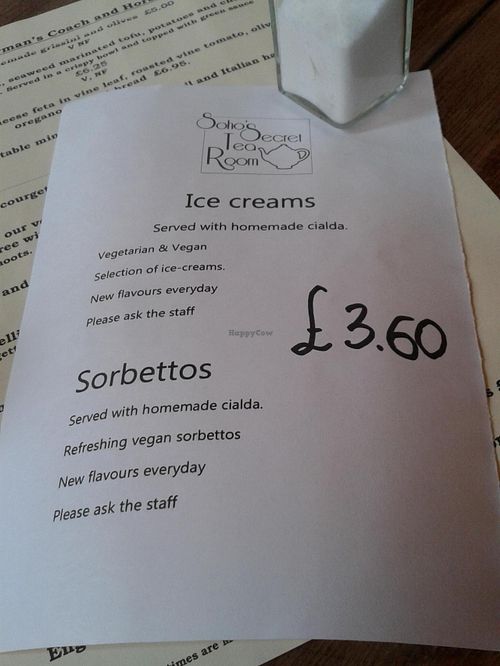 man's Coach and
emade grissini and olives £5.00
V NF
seaweed marinated tofu, potatoes and
Served in a crispy bowl and topped with green sauce
£6.25
V. NF
feta in vine leaf, roasted vine tomato,
bread £6.95.
and Italian
table
our
and
Sofio's
Secret
Tea
Room
Ice creams
Served with homemade cialda.
Vegetarian & Vegan
Selection of ice-creams.
New flavours everyday
Please ask the staff
£3.60
HappyCow
Sorbettos
Served with homemade cialda.
Refreshing vegan sorbettos
New flavours everyday
Please ask the staff
times are